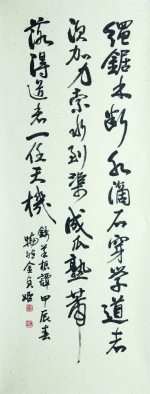 繩鋸木断水滴石穿学道者
須加力索水到渠成瓜熟蒂
落得道者一任天機
錄菜根譚 甲辰春
金貞姬